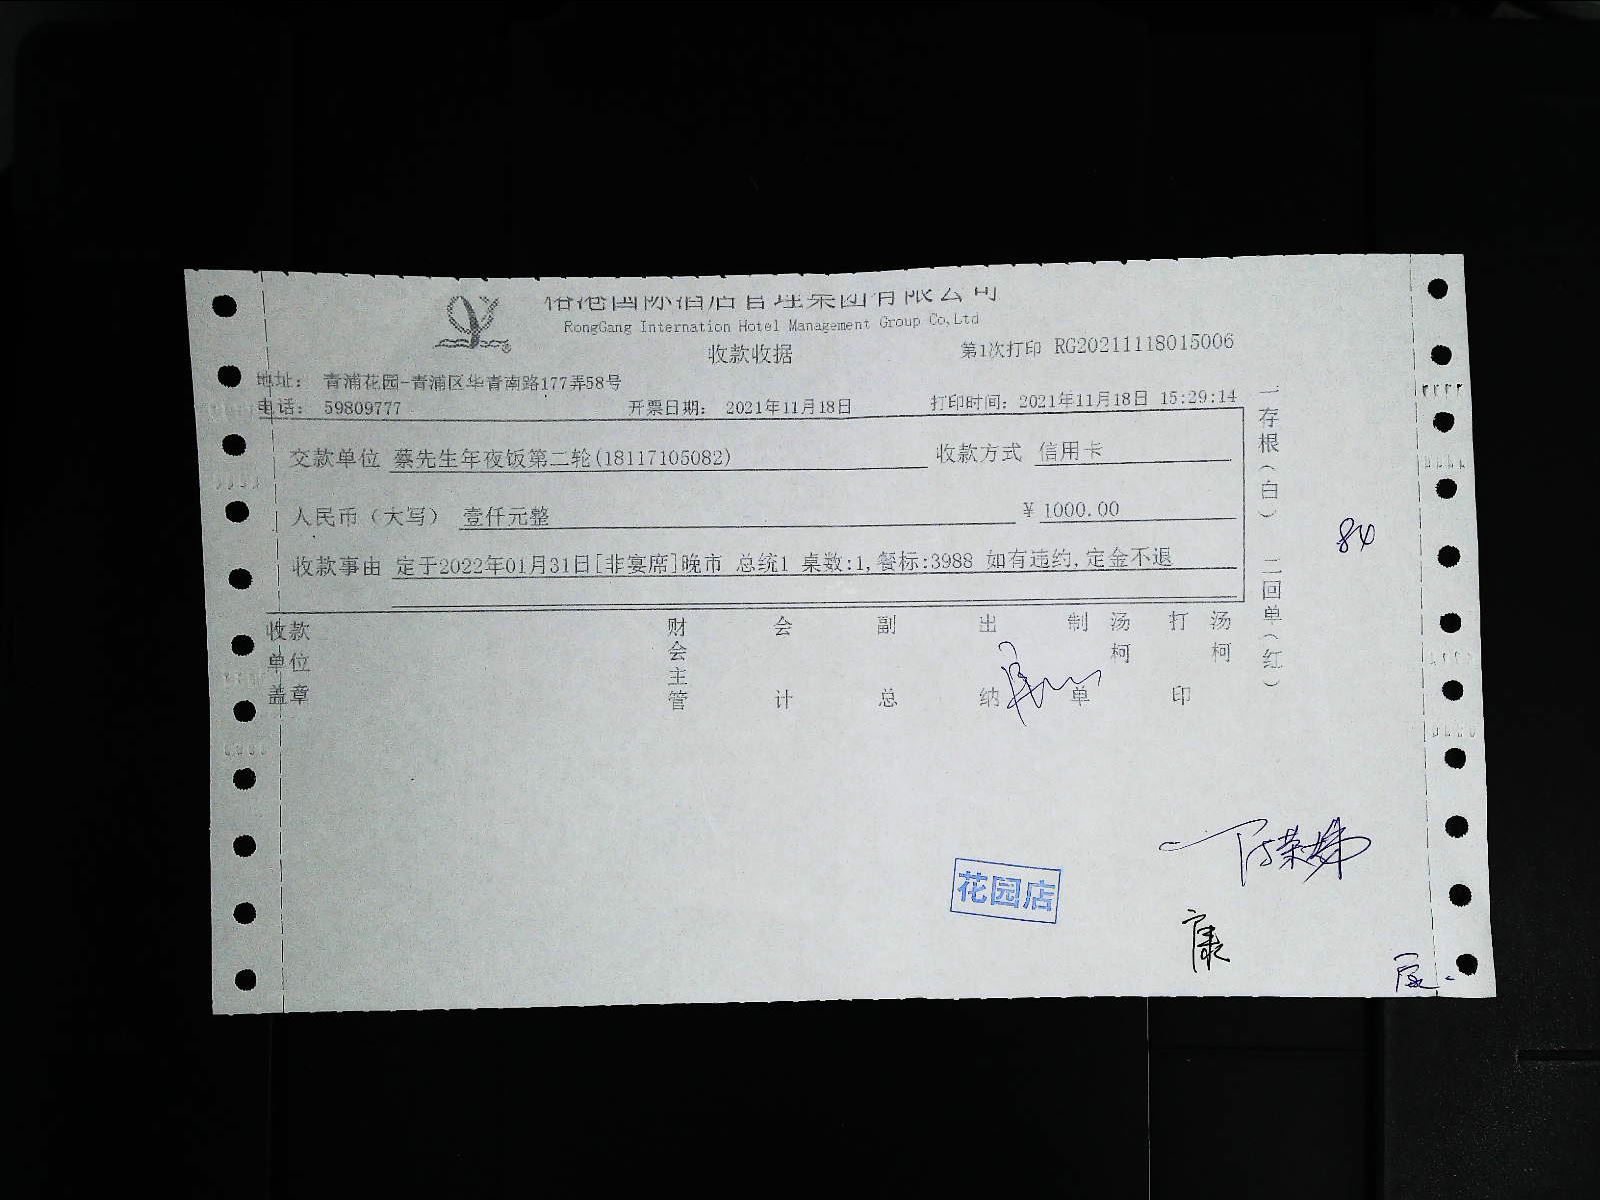 国际酒店管理集团有限公司
RongGang Internation Hotel Management Group Co,Ltd
收款收据
第1次打印 RG20211118015006
地址: 青浦花园-青浦区华青南路177弄58号
电话: 59809777 开票日期: 2021年11月18日 打印时间: 2021年11月18日 15:29:14
交款单位 蔡先生年夜饭第二轮(18117105082) 收款方式 信用卡
人民币（大写） 壹仟元整 ¥ 1000.00
收款事由 定于2022年01月31日[非宴席]晚市 总统1 桌数:1,餐标:3988 如有违约,定金不退
收款单位盖章 财会主管 会计 副总 出纳 制单 汤柯 打印 汤柯
一存根（白） 二回单（红）
84
花园店
康